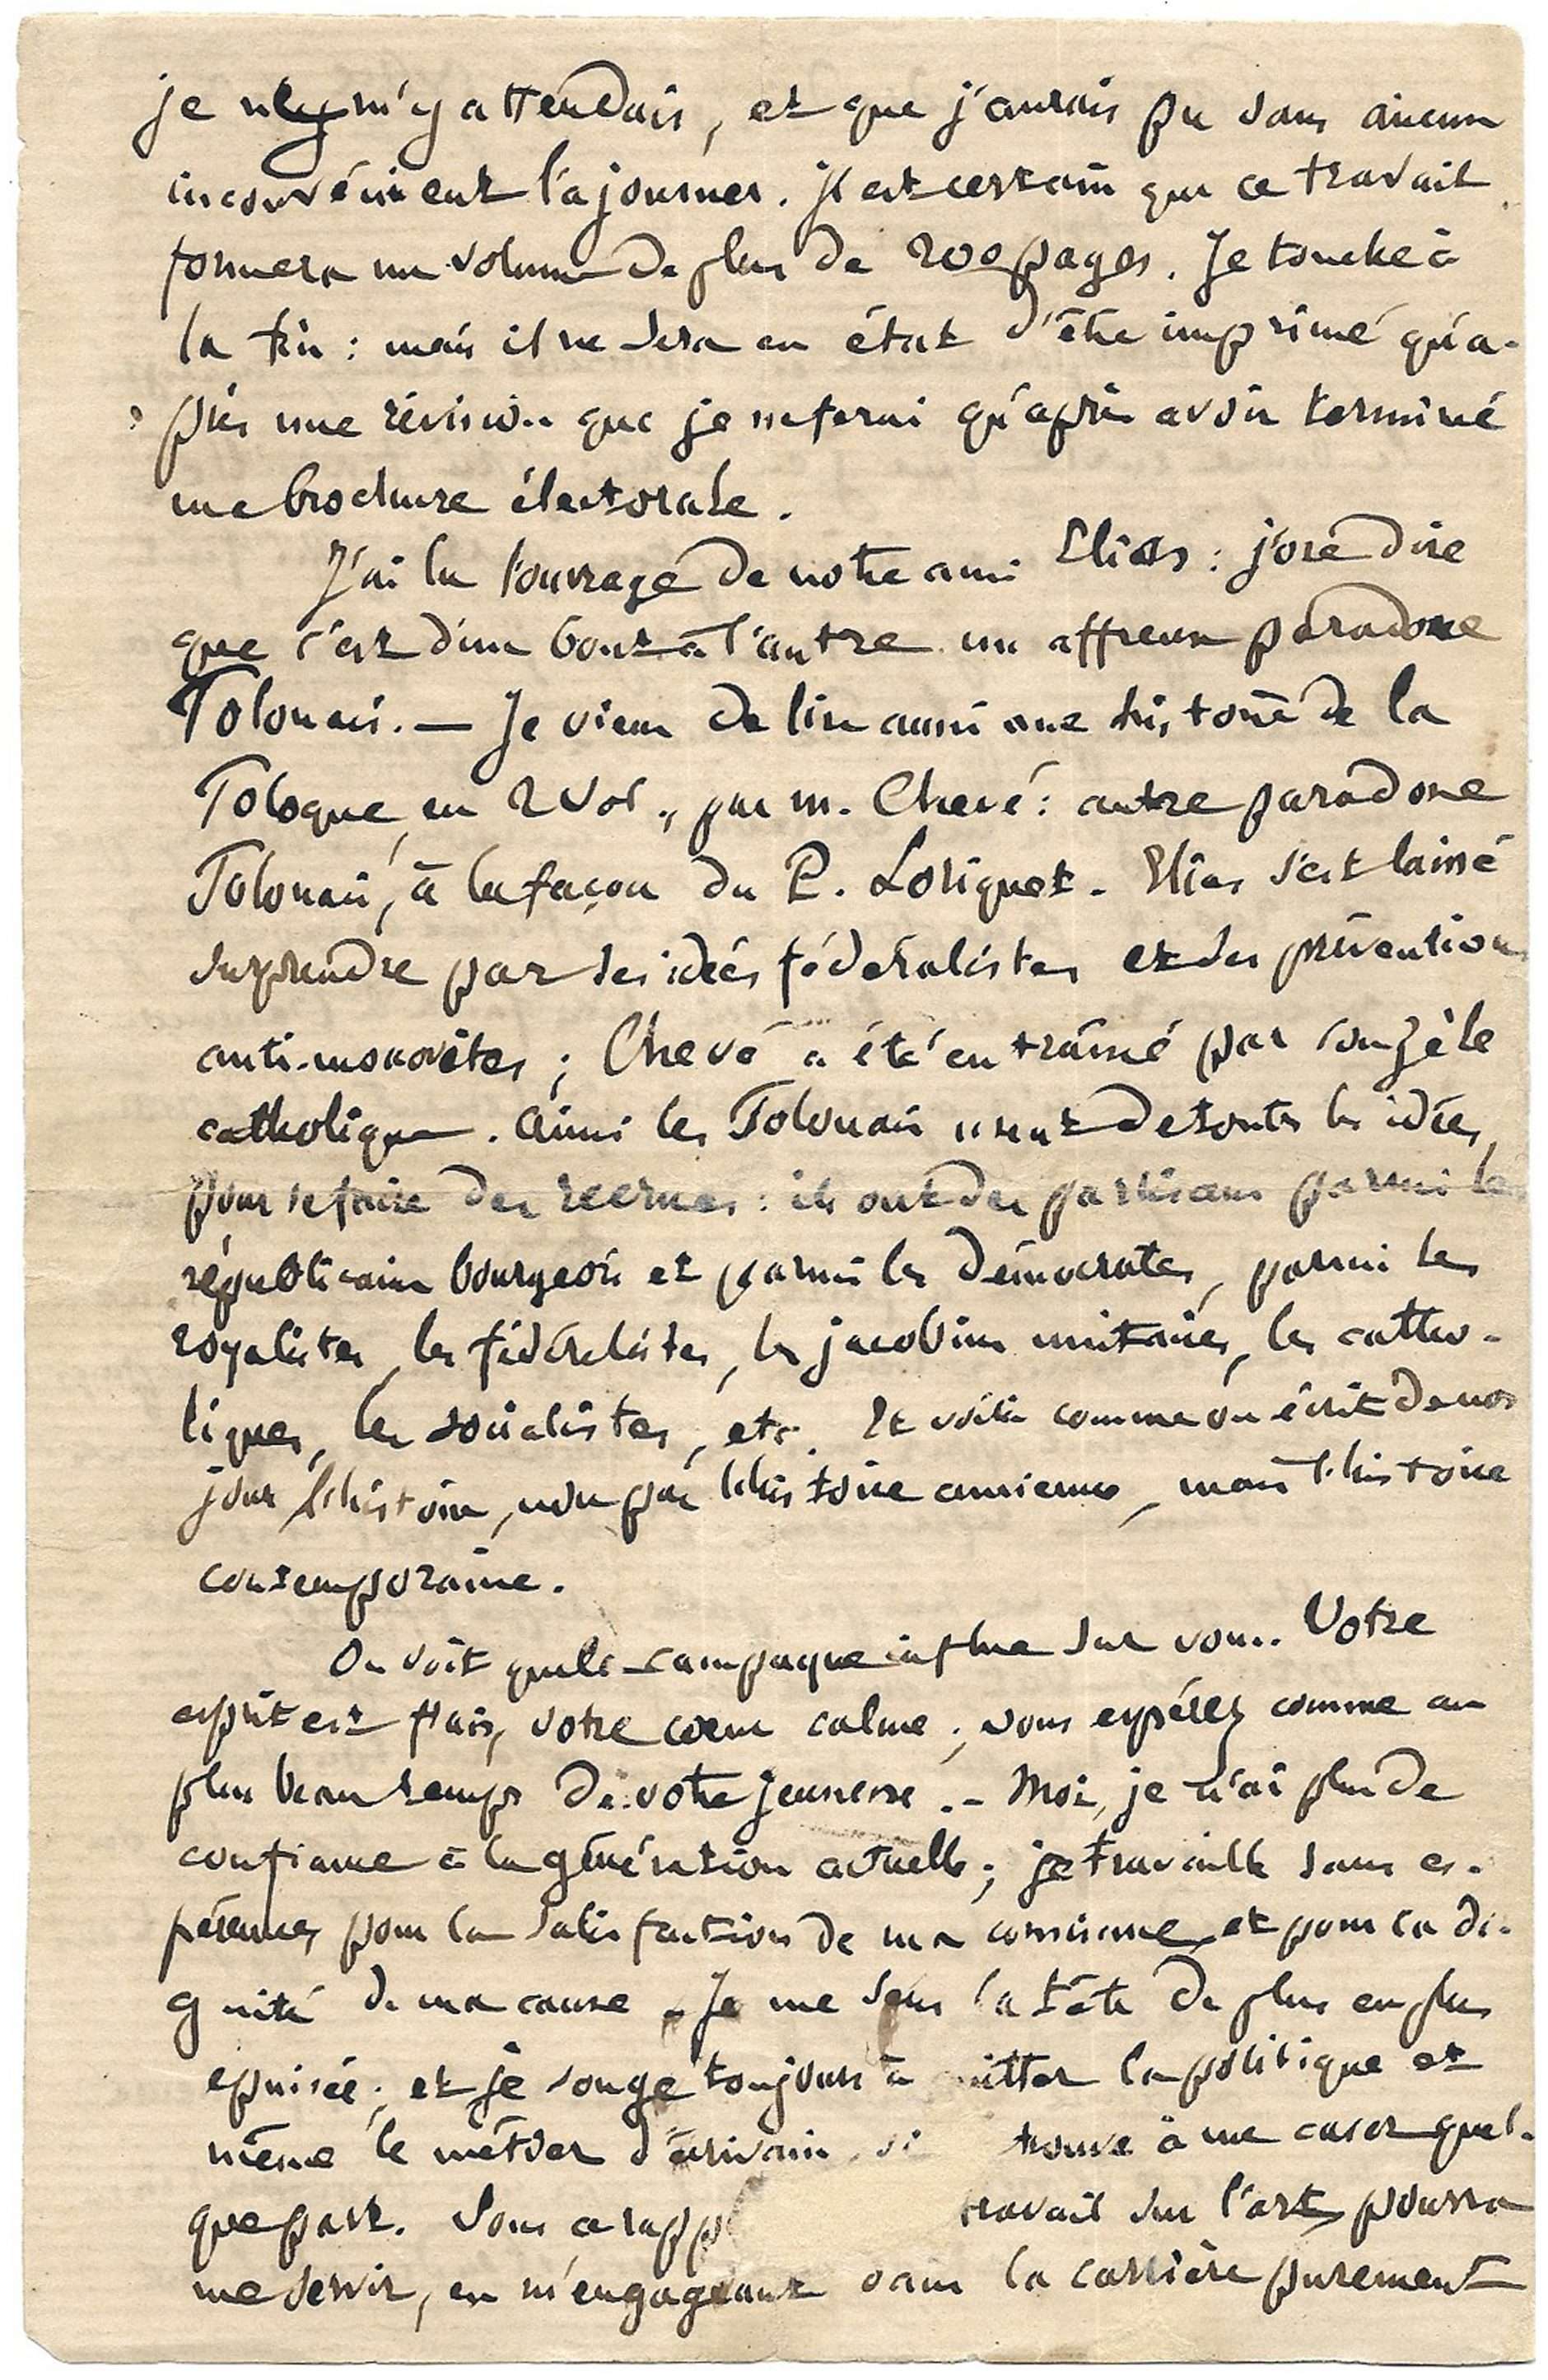 je ne m'y attendais, et que j'aurais pu sans aucun
inconvénient l'ajourner. Il est certain que ce travail
formera un volume de plus de 200 pages. Je touche à
la fin : mais il ne sera en état d'être imprimé qu'a-
près une révision que je ne ferai qu'après avoir terminé
ma brochure électorale.
J'ai lu l'ouvrage de notre ami Elias : j'ose dire
que c'est d'un bout à l'autre un affreux paradoxe
Polonais. — Je viens de lire aussi une histoire de la
Pologne, en 2 vol., par M. Chevé : autre paradoxe
Polonais, à la façon du P. Loriquet. Elias s'est laissé
surprendre par ses idées fédéralistes et ses préventions
anti-moscovites ; Chevé a été entraîné par son zèle
catholique. Ainsi les Polonais usent de toutes les idées,
pour se faire des recrues : ils ont des partisans parmi les
républicains bourgeois et parmi les démocrates, parmi les
royalistes, les fédéralistes, les jacobins unitaires, les catho-
liques, les socialistes, etc. Et voilà comme on écrit de nos
jours l'histoire, non pas l'histoire ancienne, mais l'histoire
contemporaine.
On voit que la campagne influe sur vous. Votre
esprit est frais, votre cœur calme ; vous espérez comme au
plus beau temps de votre jeunesse. - Moi, je n'ai plus de
confiance à la génération actuelle ; je travaille sans es-
pérances, pour la satisfaction de ma conscience et pour la di-
gnité de ma cause. Je me sens la tête de plus en plus
épuisée ; et je songe toujours à quitter la politique et
même le métier d'écrivain, si trouve à me caser quel-
que part. Sous ce rapp travail sur l'art, pourra
me servir, en m'engageant dans la carrière purement